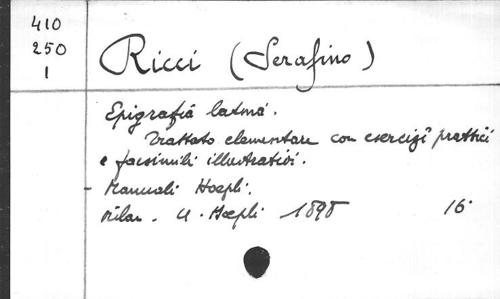 410
250
1
Ricci (Serafino)
Epigrafia latina.
Trattato elementare con esercizi prattici
e facsimili illustrativi.
- Manuali Hoepli.
Milan. U. Hoepli 1898 16°